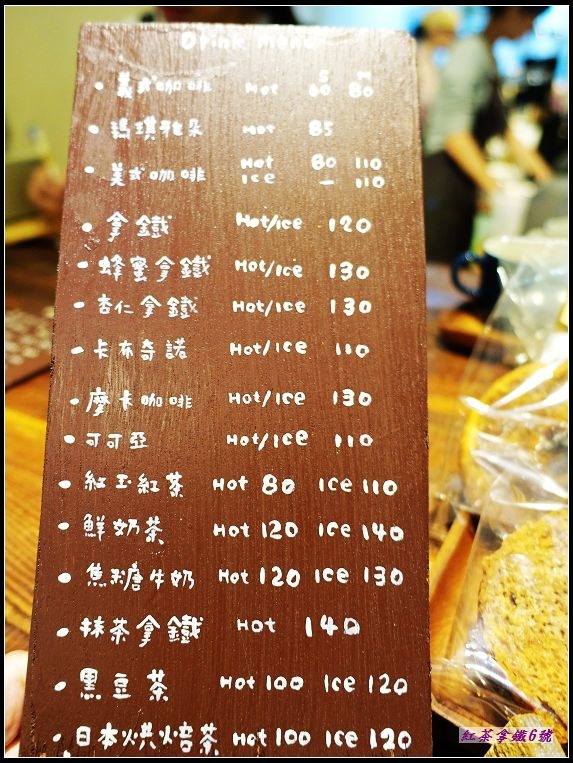 Drink Menu
S M
• 義式咖啡 Hot 60 80
• 瑪琪雅朵 Hot 85
• 美式咖啡 Hot 80 110
Ice — 110
• 拿鐵 Hot/ice 120
• 蜂蜜拿鐵 Hot/Ice 130
• 杏仁拿鐵 Hot/Ice 130
• 卡布奇諾 Hot/Ice 110
• 摩卡咖啡 Hot/Ice 130
• 可可亞 Hot/Ice 110
• 紅玉紅茶 Hot 80 Ice 110
• 鮮奶茶 Hot 120 Ice 140
• 焦糖牛奶 Hot 120 Ice 130
• 抹茶拿鐵 Hot 140
• 黑豆茶 Hot 100 Ice 120
• 日本烘焙茶 Hot 100 Ice 120
紅茶拿鐵6號